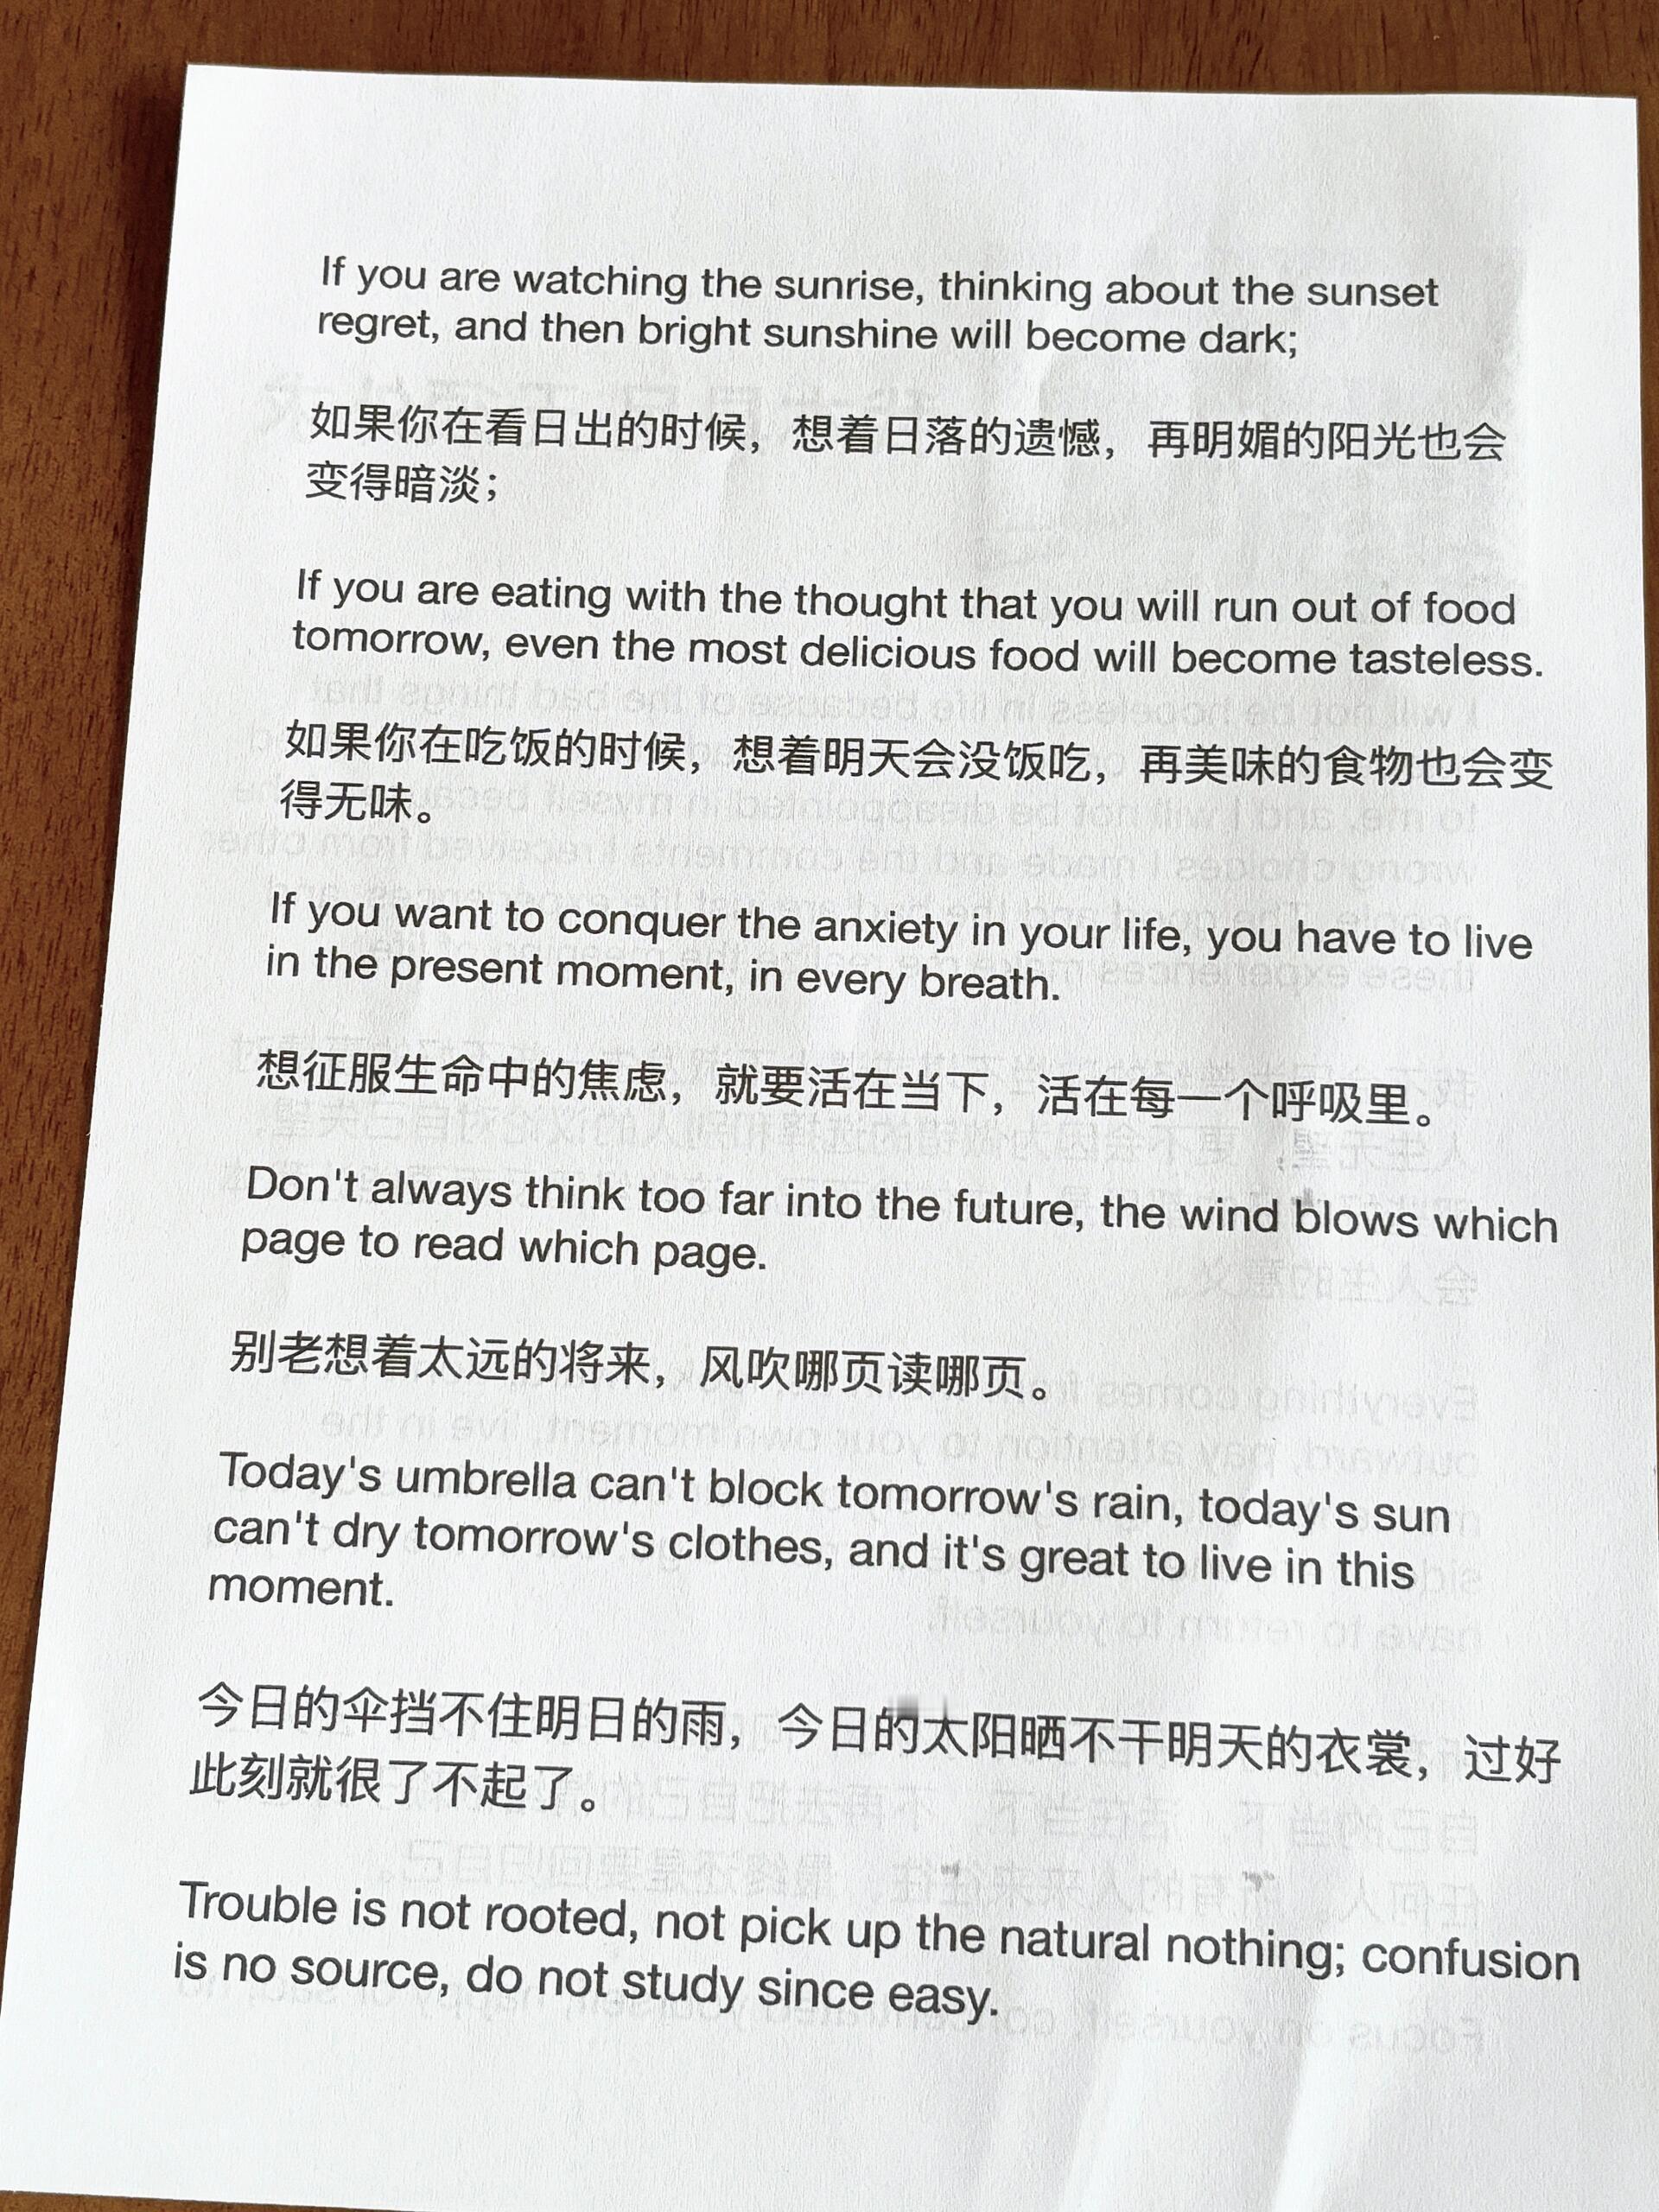 If you are watching the sunrise, thinking about the sunset
regret, and then bright sunshine will become dark;
如果你在看日出的时候，想着日落的遗憾，再明媚的阳光也会
变得暗淡；
If you are eating with the thought that you will run out of food
tomorrow, even the most delicious food will become tasteless.
如果你在吃饭的时候，想着明天会没饭吃，再美味的食物也会变
得无味。
If you want to conquer the anxiety in your life, you have to live
in the present moment, in every breath.
想征服生命中的焦虑，就要活在当下，活在每一个呼吸里。
Don't always think too far into the future, the wind blows which
page to read which page.
别老想着太远的将来，风吹哪页读哪页。
Today's umbrella can't block tomorrow's rain, today's sun
can't dry tomorrow's clothes, and it's great to live in this
moment.
今日的伞挡不住明日的雨，今日的太阳晒不干明天的衣裳，过好
此刻就很了不起了。
Trouble is not rooted, not pick up the natural nothing; confusion
is no source, do not study since easy.